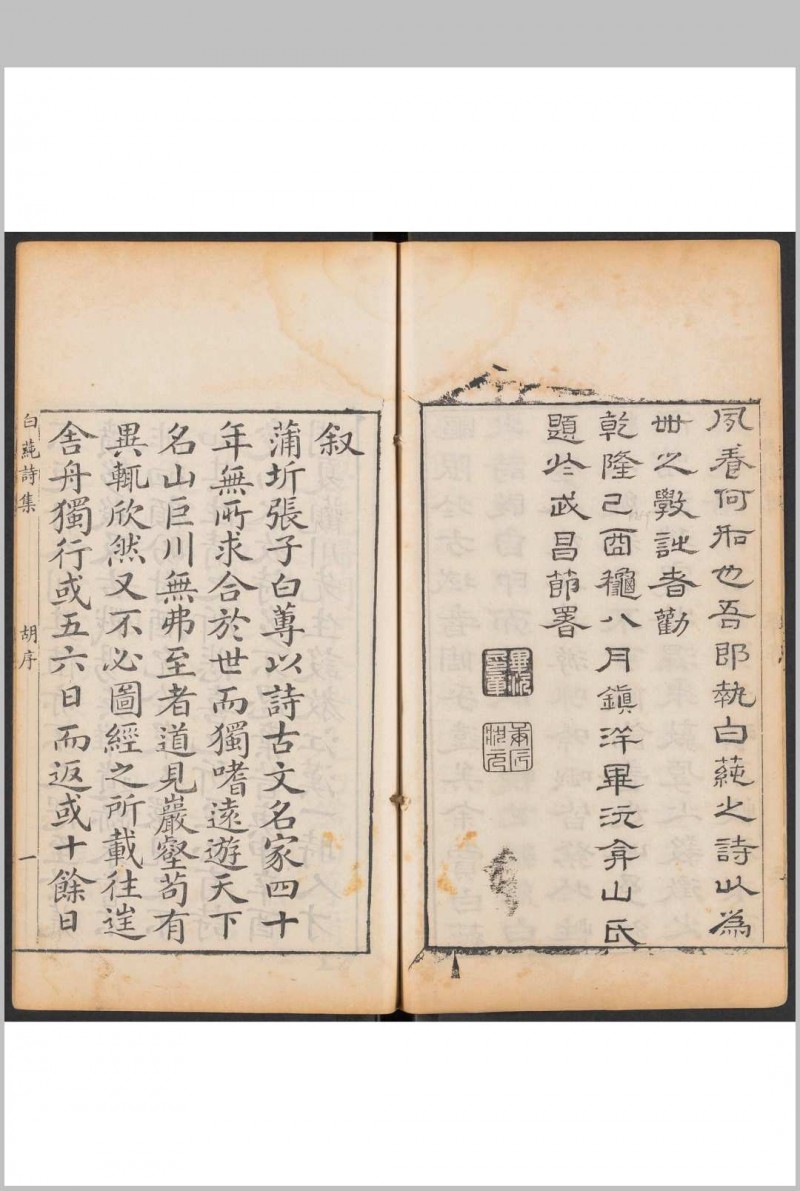 夙養何如也吾即執白蒓之詩以為
世之斅詩者勸
乾隆己酉穐八月鎮洋畢沅弇山氏
題於武昌節署
畢沅
叙
蒲圻張子白蓴以詩古文名家四十
年無所求合於世而獨嗜遠遊天下
名山巨川無弗至者道見巖壑苟有
異輒欣然又不必圖經之所載往往
舍舟獨行或五六日而返或十餘日
白蒓詩集
胡序
一